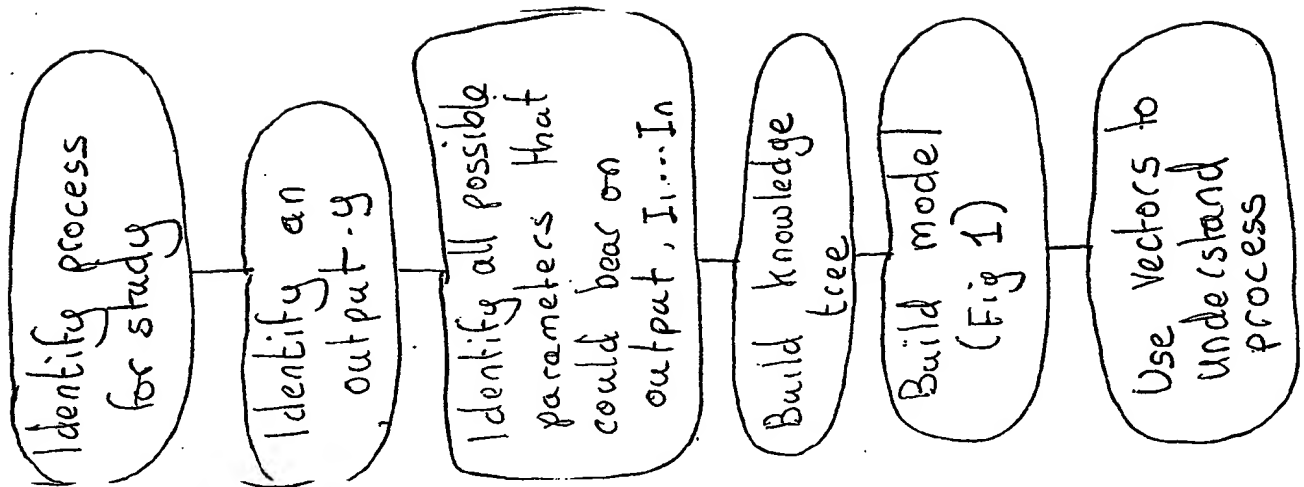 Identify process
for study
Identify an
output.y
Identify all possible
parameters that
could bear on
output, I1....In
Build knowledge
tree
Build model
(Fig 1)
Use Vectors to
Understand
process